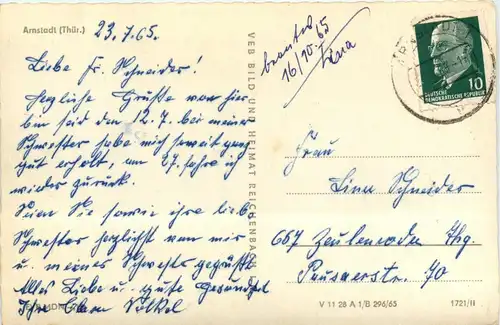 Arnstadt (Thür.)
23.7.65.
Liebe Fr. Schneider!
Herzliche Grüße von hier
bin seid den 12.7. bei meiner
Schwester habe mich soweit ganz
gut erholt, am 27. fahre ich
wieder zurück.
Seien Sie sowie ihre liebe
Schwester herzlichst von mir
u. meines Schwester gegrüßt
Alles Liebe u. gute Gesundheit
Ihre Clara Völkel
VEB BILD UND HEIMAT REICHENBACH
beantw.
16/10.65
Lina
DEUTSCHE
DEMOKRATISCHE REPUBLIK
10
Frau
Lina Schneider
667 Zeulenroda Thg.
Pausaerstr. 70
V 11 28 A 1/B 296/65
1721/II